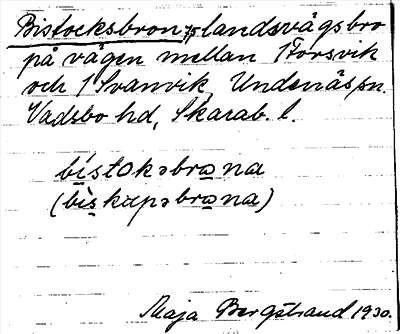 Bistocksbron, landsvägsbro
på vägen mellan 1 Forsvik
och 1 Svanvik, Undenäs sn.
Vadsbo hd, Skarab. l.
bístokəbrona
(bìskupəbrona)
Maja Bergstrand 1930.